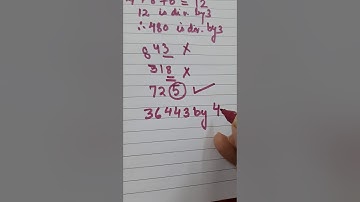 12 is div. by 3
∴ 480 is div. by 3
843 X
318 X
725 ✓
36443 by 4